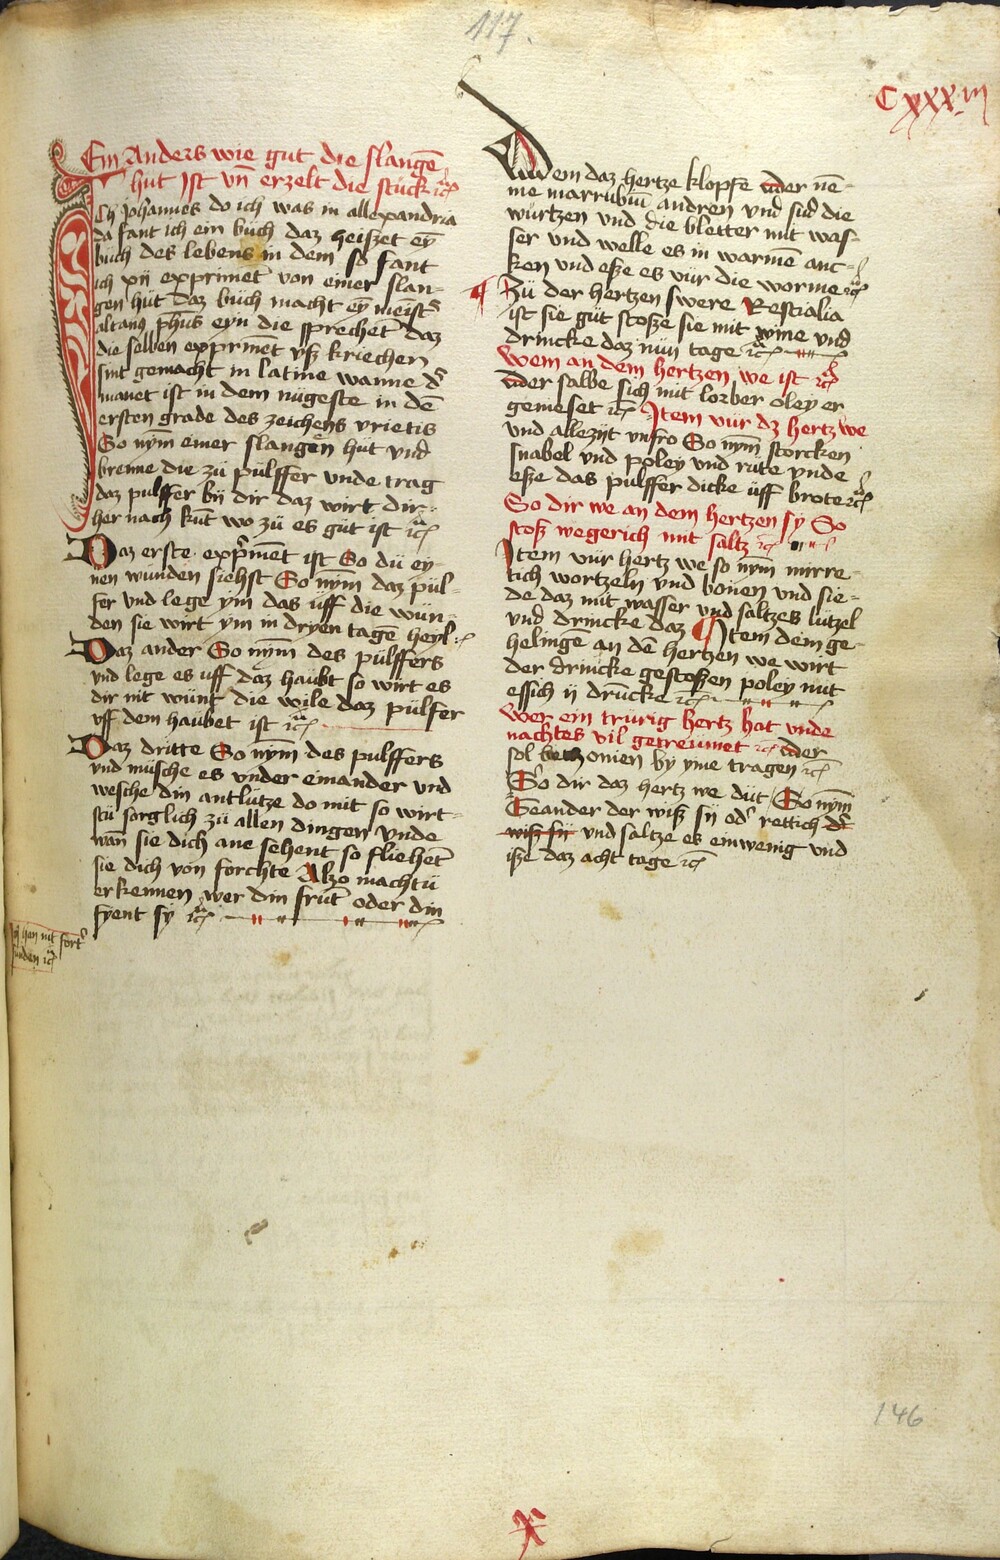 117.
Cxxxiij
Ein Anders wie gut die slangē
hut Ist vn̄ erzelt die stuck ⁊c̄
Ich Johannes do ich was in allexandria
da fant ich ein buch daz heiszet eȳ
buch des lebens in dem so fant
ich xij exprimet von einer slan-
gen hüt daz buch macht eȳ meist̾
altanus ph̄us eyn die sprechet daz
die selben exprimēt vsz kriechen
sint gemacht in latine wanne d̾
manet ist in dem nügeste in dē
ersten grade des zeichens vrietis
So nym einer slangen hüt vnd
brenne die zu pülffer vnde trag
daz pulffer bÿ dir daz wirt dir
her nach kūt wo zü es güt ist ⁊c̄
Daz erste exprimēt ist So dü ey-
nen wunden siehst So nym̄ daz pül-
fer vnd lege ym das üff die wün-
den sie wirt ym in dryen tagē heyl
Daz ander So nym̄ des pülffers
vnd lege es uff daz haubt so wirt es
dir nit wünt die wile daz pülfer
vff dem haübet ist ⁊c̄
Daz dritte So nym̄ des pulffers
vnd müsche es vnder einander vnd
wesche din antlütze do mit so wirt-
stü sorglich zü allen dingen vnde
wan sie dich ane sehent so fliehet
sie dich von forchte Also machtü
erkennen wer din frūt oder din
fyent sy ⁊c̄
Ich han nit fort
funden ⁊c̄
Wem daz hertze klopfe der nē-
me marrubiū andren vnd sud die
würtzen vnd die bletter mit was-
ser und welle es in warmē anc-
ken vnd esze es vür die worme ⁊c̄
Zü der hertzen swere Restialia
ist sie güt stosze sie mit wine vnd
drincke daz nün tage ⁊c̄
Wem an dem hertzen we ist ⁊c̄
der salbe sich mit lorber oley er
gemeset ⁊c̄ Item vür dz hertz we
vnd allezijt vnfro So nym̄ storcken
snabel vnd poley vnd rute vnde
esze das pulffer dicke üff brote ⁊c̄
So dir we an dem hertzen sy So
stosz wegerich mit saltz ⁊c̄
Item vür hertz we so nym̄ mirre-
tich wortzeln vnd bonen vnd sie-
de daz mit wasser vnd saltzes lützel
vnd drincke daz Item dem ge-
helingē an dē hertzen we wirt
der drincke gestoszen poley mit
essich ij drucke ⁊c̄
Wer ein trurig hertz hat vnde
nachtes vil getreümet ⁊c̄ der
sol betonien by yme tragen ⁊c̄
So dir daz hertz we düt So nym̄
Geander der wisz sy od̾ rettich d̾
wisz sij vnd saltze es einwenig vnd
isze daz acht tage ⁊c̄
146